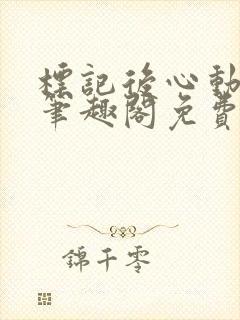 標記後心動
筆趣閣免費
錦千零